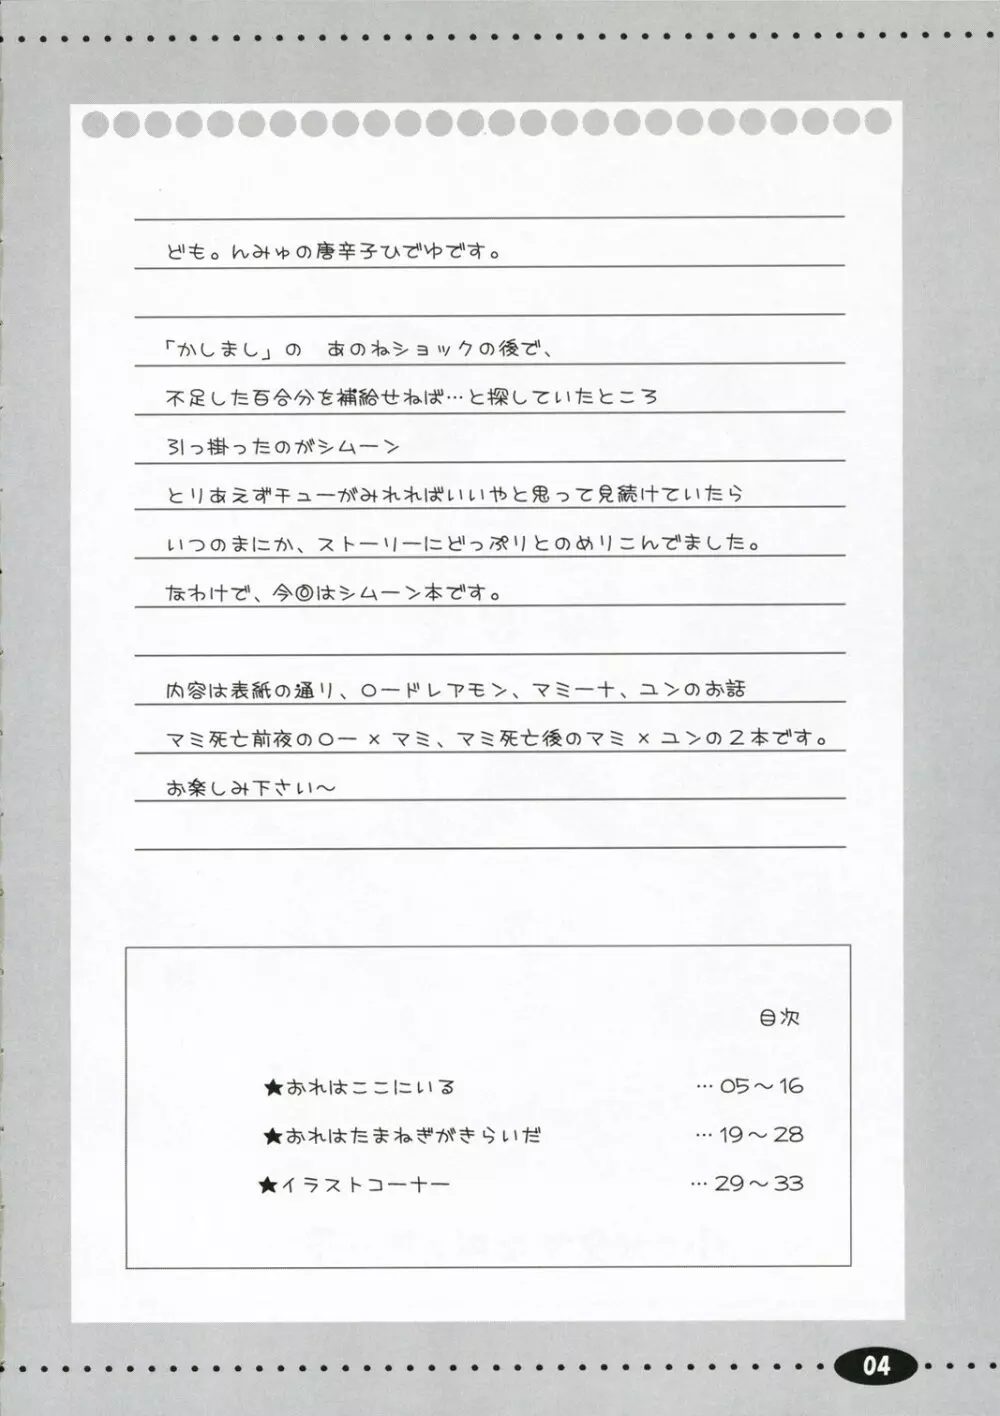 ども。んみゅの唐辛子ひでゆです。
「かしまし」の　あのねショックの後で、
不足した百合分を補給せねば…と探していたところ
引っ掛ったのがシムーン
とりあえずチューがみれればいいやと思って見続けていたら
いつのまにか、ストーリーにどっぷりとのめりこんでました。
なわけで、今回はシムーン本です。
内容は表紙の通り、ロードレアモン、マミーナ、ユンのお話
マミ死亡前夜のロー×マミ、マミ死亡後のマミ×ユンの２本です。
お楽しみ下さい〜
目次
★おれはここにいる … 05〜16
★おれはたまねぎがきらいだ … 19〜28
★イラストコーナー … 29〜33
04